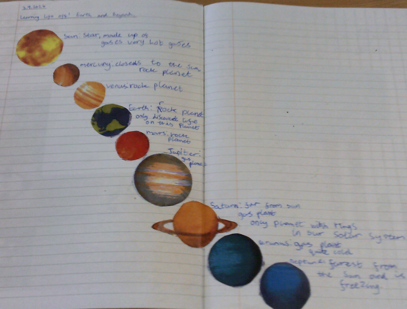 Sun: Star, made up of
gases very hot gases
mercury: closest to the sun
rock planet
venus: rock planet
Earth: Rock planet
only
on this planet
mars: rock
planet
Jupiter:
gas
Saturn: far from sun
gas planet
only planet with rings
in our Solar System
uranus: gas planet
quite cold
from
the sun and is
freezing